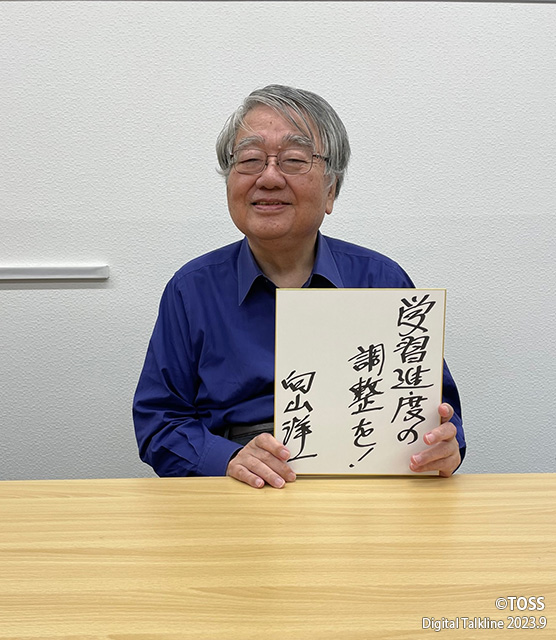 学習進度の
調整を!
向山洋一
©TOSS
Digital Talkline 2023.9